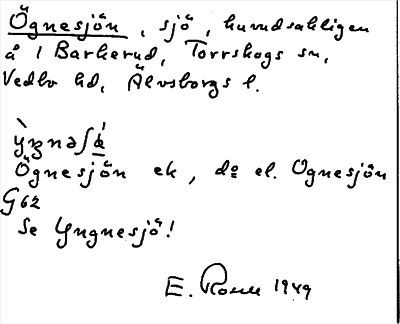 Ögnesjön, sjö, huvudsakligen
å 1 Barkerud, Torrskogs sn,
Vedbo hd, Älvsborgs l.
Ögnesjön ek, do el. Ognesjön
G62
Se Yngnesjö!
E. 1949